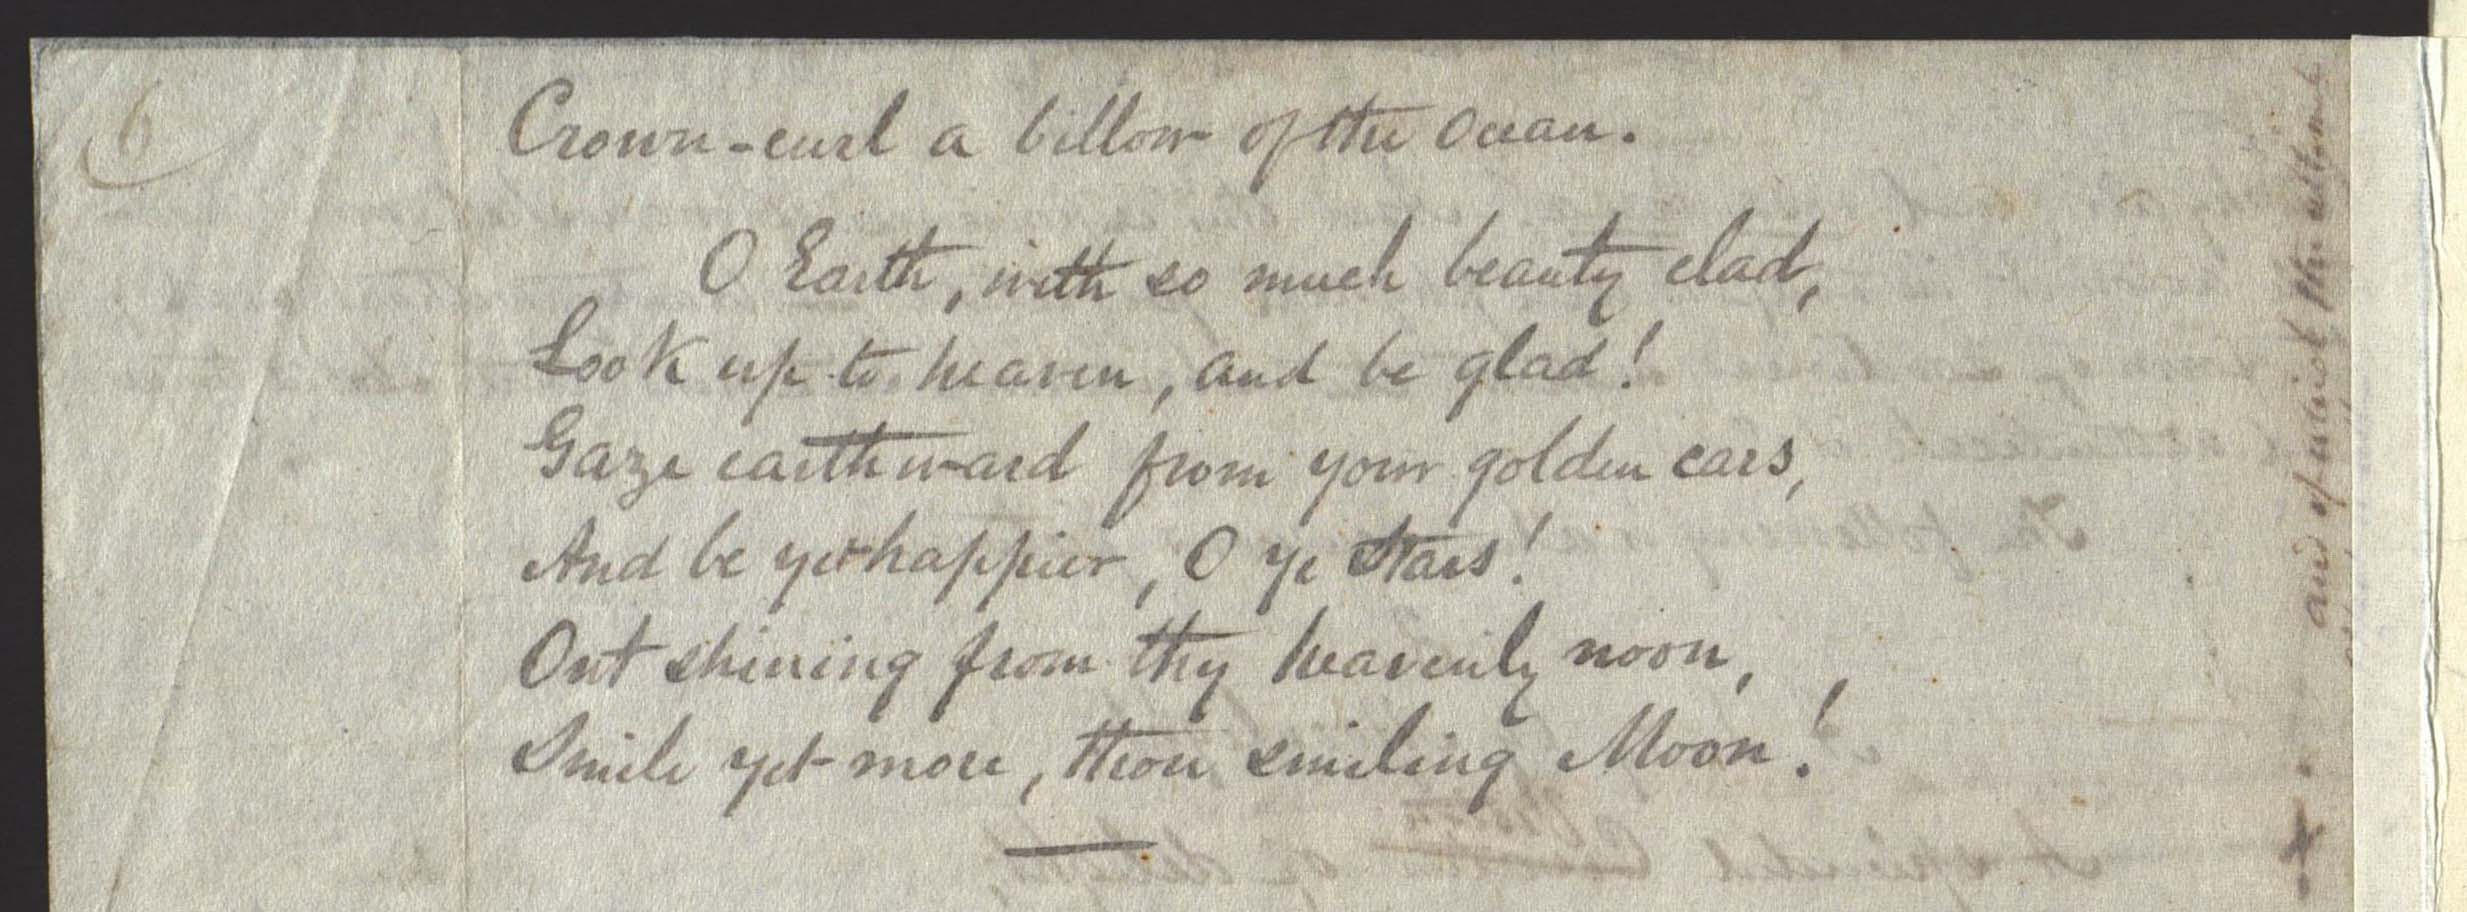 6
Crown-curl a billow of the Ocean.
O Earth, with so much beauty clad,
Look up to heaven, and be glad!
Gaze earthward from your golden cars,
And be yet happier, O ye Stars!
Out shining from thy heavenly noon,
Smile yet more, thou smiling Moon!
and of which the